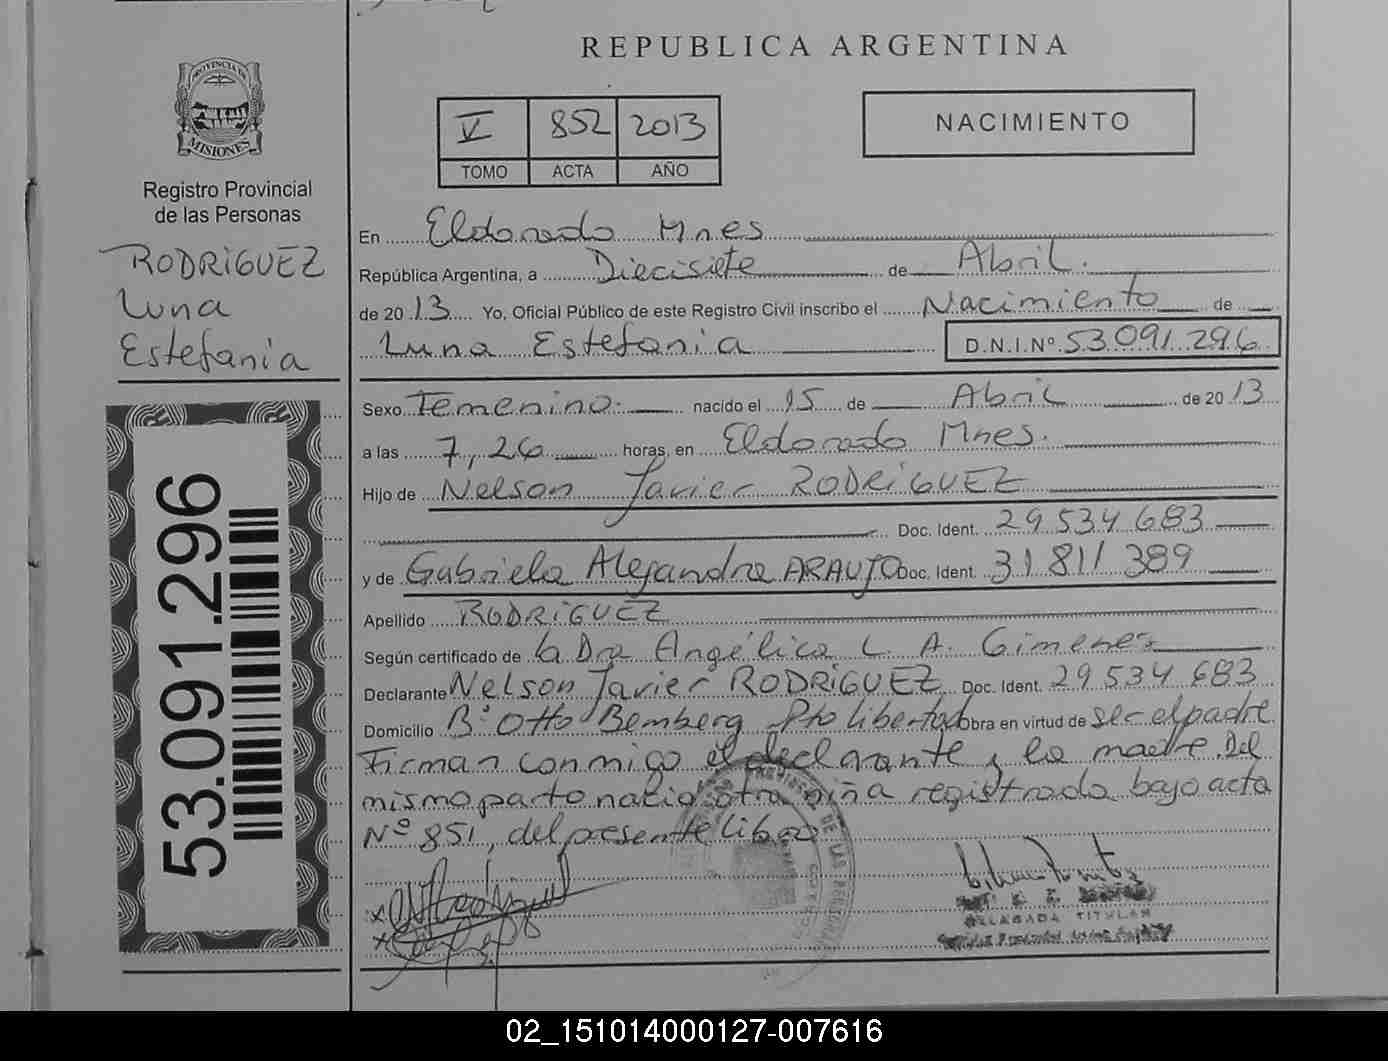 REPUBLICA ARGENTINA
PROVINCIA DE
MISIONES
Registro Provincial
de las Personas
RODRIGUEZ
Luna
Estefania
53.091.296
V 852 2013
TOMO ACTA AÑO
NACIMIENTO
En Eldorado Mnes
República Argentina, a Diecisiete de Abril.
de 20 13 Yo, Oficial Público de este Registro Civil inscribo el Nacimiento de
Luna Estefania D.N.I.Nº 53.091.296
Sexo Femenino. nacido el 15 de Abril de 20 13
a las 7,26 horas, en Eldorado Mnes.
Hijo de Nelson Javier RODRIGUEZ
Doc. Ident. 29 534 683
y de Gabriela Alejandra ARAUJO Doc. Ident. 31 811 389
Apellido RODRIGUEZ
Según certificado de la Dra Angélica L. A. Gimenez
Declarante Nelson Javier RODRIGUEZ Doc. Ident. 29 534 683
Domicilio Bº Otto Bemberg Pto libertad Obra en virtud de ser el padre
Firman conmigo el declarante y la madre. Del
mismo parto nació otra niña registrada bajo acta
Nº 851, del presente libro
DELEGADA TITULAR
02_151014000127-007616